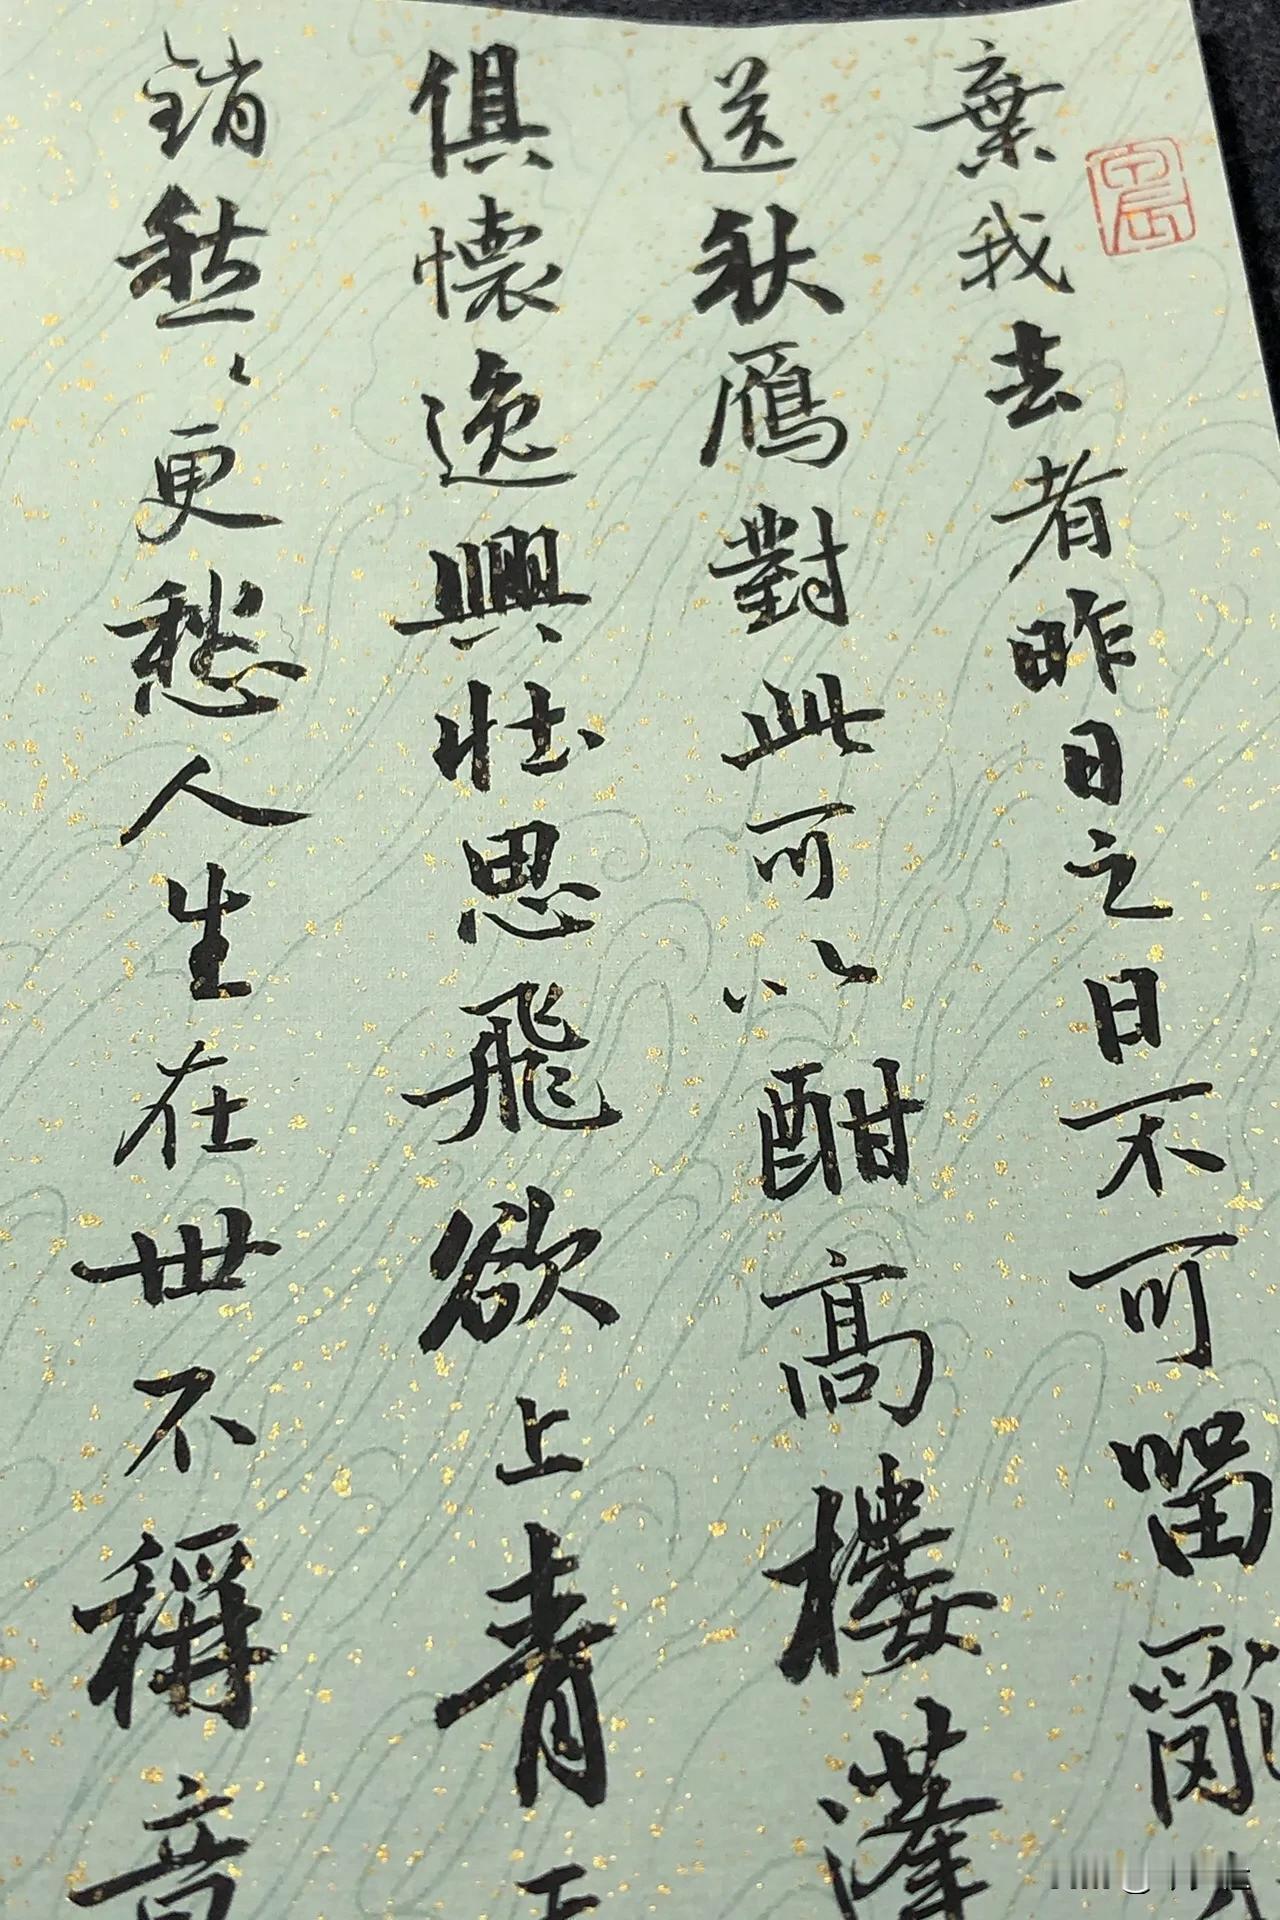 棄我去者昨日之日不可留亂
送秋鴈對此可以酣高樓蓬
俱懷逸興壯思飛欲上青
銷愁〻更愁人生在世不稱意